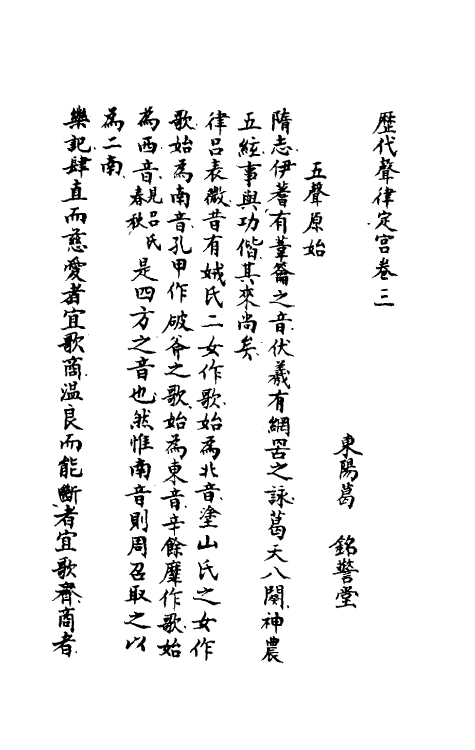 歷代聲律定宮卷三
東陽葛 銘警堂
五聲原始
隋志伊耆有葦籥之音伏羲有網罟之詠葛天八闋神農
五絃事與功偕其來尚矣
律呂表微昔有娀氏二女作歌始為北音塗山氏之女作
歌始為南音孔甲作破斧之歌始為東音辛餘靡作歌始
為西音見呂氏春秋 是四方之音也然惟南音則周召取之以
為二南
樂記肆直而慈愛者宜歌商温良而能斷者宜歌齊商者